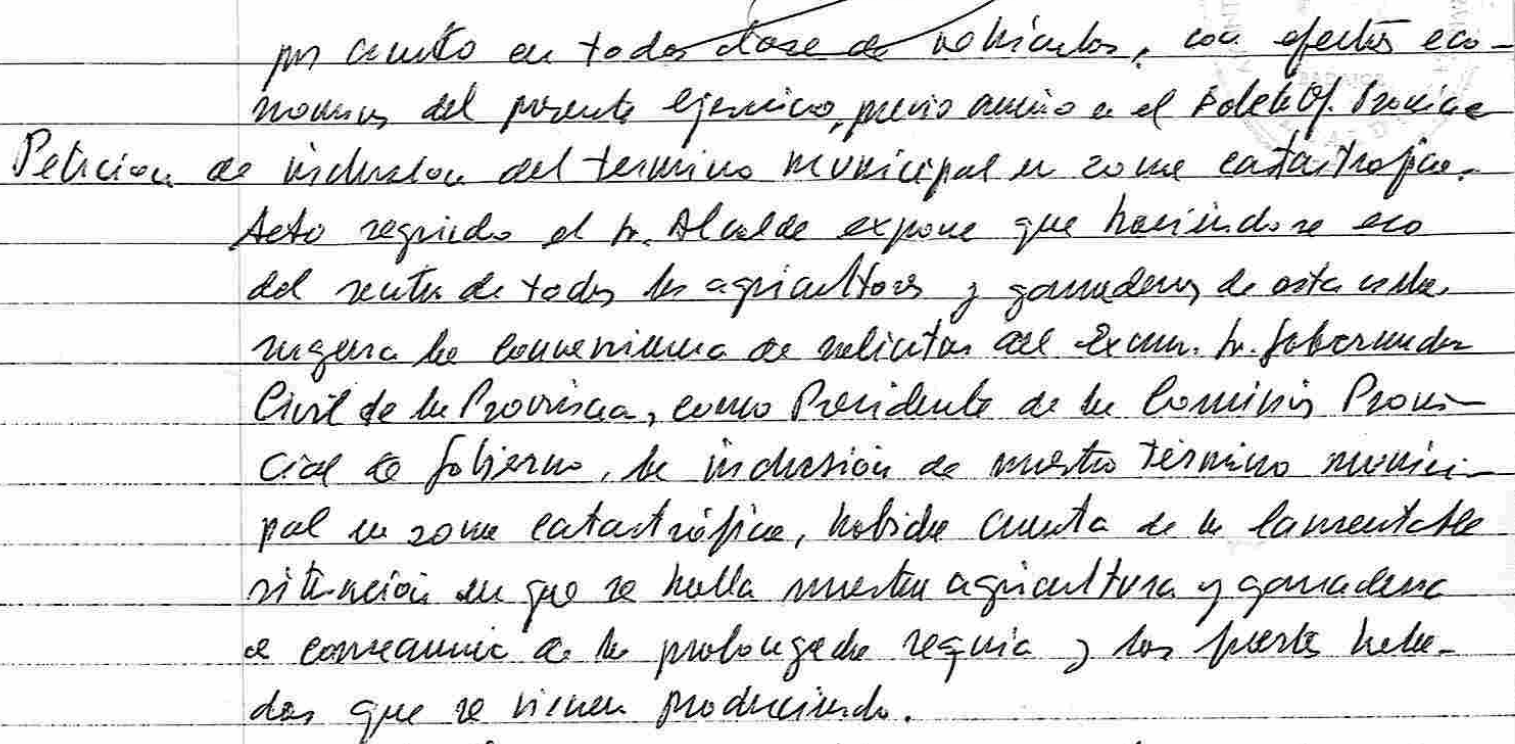 por ciento en todas clase de vehículos, con efectos eco-
nomicos del presente ejercicio, previo anuncio en el Bolet. Of. Provincia
Peticion de inclusion del termino municipal en zona catastrofica.
Acto seguido el Sr. Alcalde expone que haciendose eco
del sentir de todos los agricultores y ganaderos de esta villa,
sugeria la conveniencia de solicitar del Excmo. Sr. Gobernador
Civil de la Provincia, como Presidente de la Comisión Provin-
cial de Gobierno, la inclusión de nuestro término munici-
pal en zona catastrófica, habida cuenta de la lamentable
situación en que se halla nuestra agricultura y ganaderia
a consecuencia de la prolongada sequía y las fuertes hela-
das que se vienen produciendo.